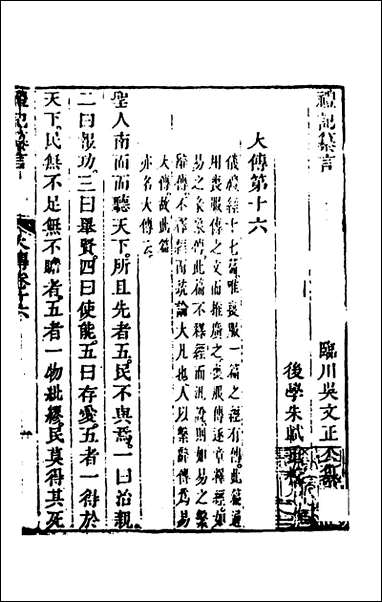 禮記纂言 臨川吳文正公
後學朱軾
大傳第十六
儀禮經十七篇唯喪服一篇之經有傳此篇通
用喪服傳之文而推廣之喪服傳逐章釋經如
易之彖象傳此篇不釋經而泛說則如易之繫
辭傳不釋經而統論大凡也人以繫辭傳為易
大傳故此篇
亦名大傳云
聖人南面而聽天下所且先者五民不與焉一曰治親
二曰報功三曰舉賢四曰使能五曰存愛五者一得於
天下民無不足無不贍者五者一物紕繆民莫得其死
禮記纂言 大傳卷十六